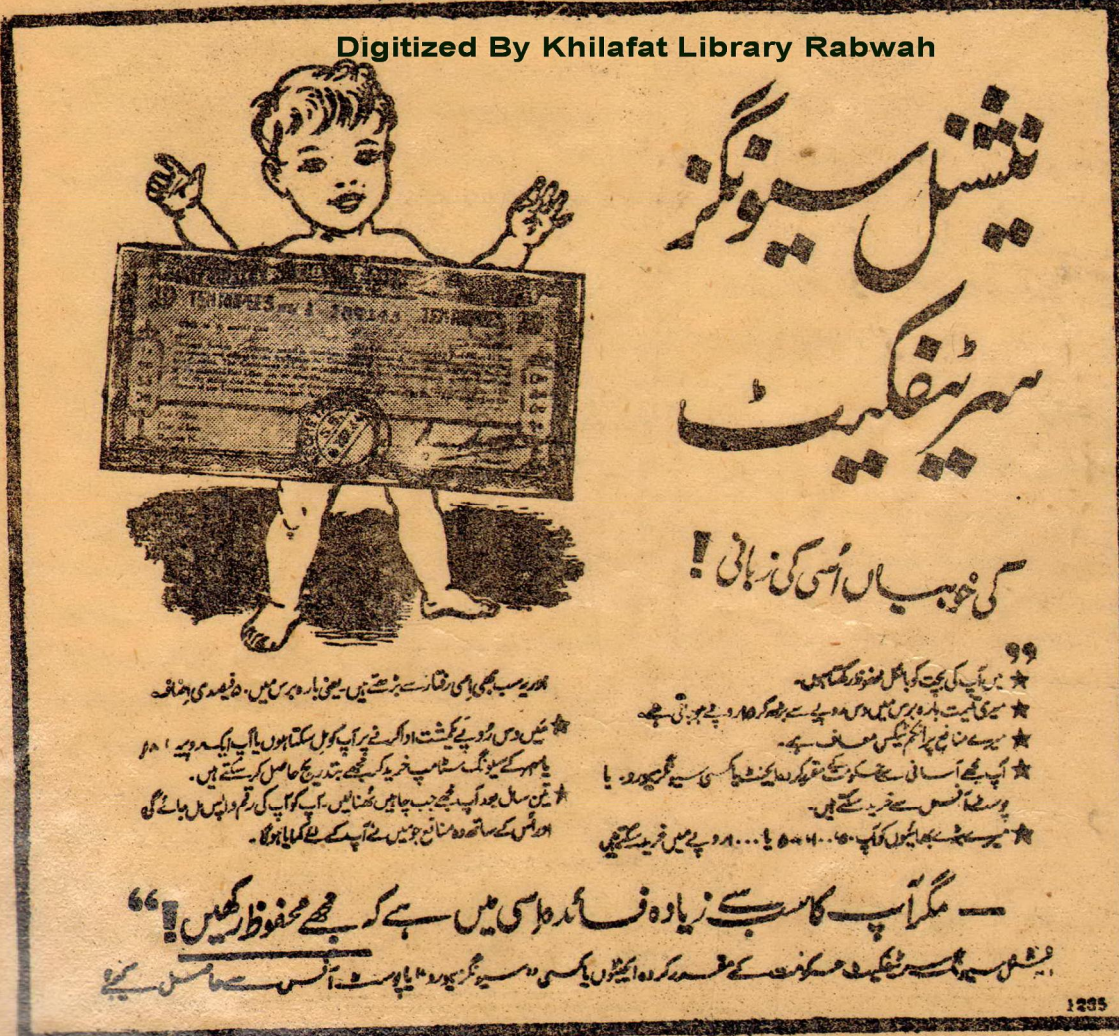 Digitized By Khilafat Library Rabwah
نیشنل سیونگز
سرٹیفکیٹ
کی خوبیاں اُسی کی زبانی !
TEN RUPEES 109143 TEN RUPEES
”
★ میں آپ کی بچت کو بالکل محفوظ رکھتا ہوں۔
★ میری قیمت بارہ برس میں دس روپے سے بڑھ کر ۱۵ روپے ہو جاتی ہے۔
★ میرے منافع پر انکم ٹیکس معاف ہے۔
★ آپ مجھے آسانی سے حکومت کے مقرر کردہ ایجنٹ یا کسی سیونگز بیورو۔ یا
پوسٹ آفس سے خرید سکتے ہیں۔
★ میرے بڑے بھائیوں کو آپ یا روپے میں خرید سکتے ہیں
اور یہ سب بھی اِسی رفتار سے بڑھتے ہیں۔ یعنی بارہ برس میں ۵۰ فیصدی اِضافہ
★ میں دس رُوپے یکمشت ادا کرنے پر آپ کو مل سکتا ہوں یا آپ ایک روپیہ
کے سیونگ سٹامپ خرید کر مجھے بتدریج حاصل کر سکتے ہیں۔
★ تین سال بعد آپ مجھے جب چاہیں بُھنا لیں۔ آپ کو آپ کی رقم واپس مل جائے گی
اور اُس کے ساتھ وہ منافع جو میں نے آپ کے لئے کمایا ہو گا۔
— مگر آپ کا سب سے زیادہ فائدہ اِسی میں ہے کہ مجھے محفوظ رکھیں ! “
نیشنل سیونگ سرٹیفکیٹ حکومت کے مقرر کردہ ایجنٹوں یا کسی "سیونگز بیورو" یا پوسٹ آفس سے حاصل کیجئے
1285